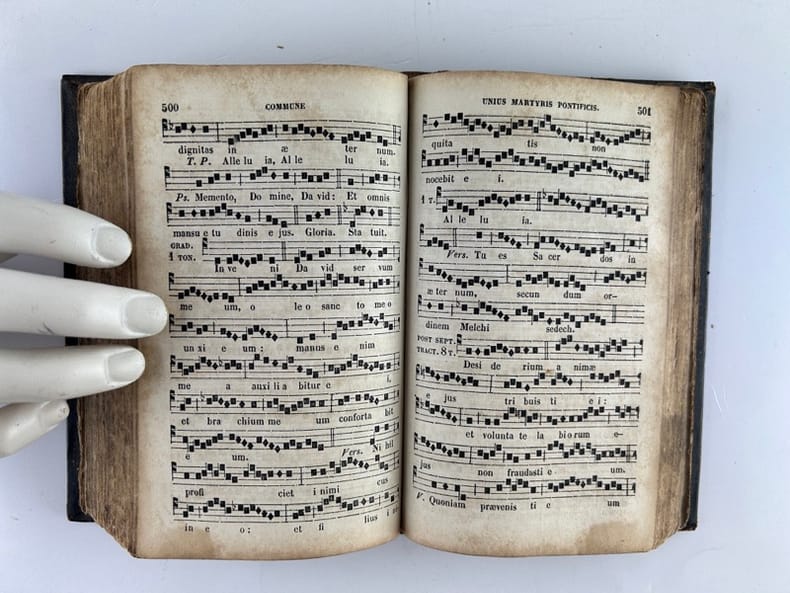 500 COMMUNE
dignitas in æ ter num.
T. P. Alle lu ia, Al le lu ia.
Ps. Memento, Do mine, Da vid: Et omnis
mansu e tu dinis e jus. Gloria. Sta tuit.
GRAD.
1 TON.
In ve ni Da vid ser vum
me um, o le o sanc to me o
un xi e um: manus e nim
me a auxi li a bitur e i,
et bra chium me um conforta bit
e um. Vers. Ni hil
profi ciet i nimi cus
in e o; et fi lius i ni
UNIUS MARTYRIS PONTIFICIS. 501
quita tis non
nocebit e i.
1 T.
Al le lu ia.
Vers. Tu es Sa cer dos in
æ ter num, secun dum or–
dinem Melchi sedech.
POST SEPT.
TRACT. 8 T.
Desi de rium a nimæ
e jus tri buis ti e i:
et volunta te la bi o rum e–
jus non fraudasti e um.
V. Quoniam prævenis ti e um